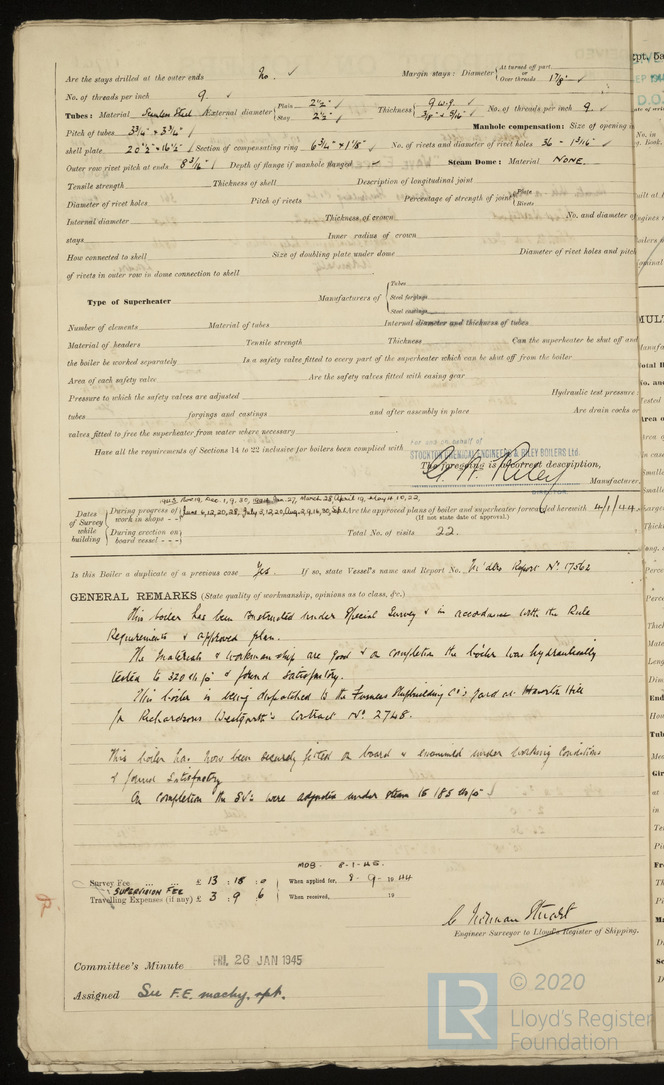 Are the stays drilled at the outer ends No. ✓ Margin stays: Diameter { At turned off part or Over threads 1 7/8" ✓
No. of threads per inch 9. ✓
Tubes: Material Seamless Steel ✓ External diameter { Plain 2½" ✓ Stay 2½" ✓ Thickness { 9 W.G. ✓ 3/8" & 5/16" ✓ No. of threads per inch 9. ✓
Pitch of tubes 3¾" × 3¾" ✓ Manhole compensation: Size of opening in
shell plate 20½" × 16½" ✓ Section of compensating ring 6¾" × 1⅛" ✓ No. of rivets and diameter of rivet holes 36 - 1 3/16" ✓
Outer row rivet pitch at ends 8 3/16" ✓ Depth of flange if manhole flanged ✓ Steam Dome: Material NONE.
Tensile strength Thickness of shell Description of longitudinal joint
Diameter of rivet holes Pitch of rivets Percentage of strength of joint { Plate Rivets
Internal diameter Thickness of crown No. and diameter of
stays Inner radius of crown
How connected to shell Size of doubling plate under dome Diameter of rivet holes and pitch
of rivets in outer row in dome connection to shell
Type of Superheater Manufacturers of { Tubes Steel forgings Steel castings
Number of elements Material of tubes Internal diameter and thickness of tubes
Material of headers Tensile strength Thickness Can the superheater be shut off and
the boiler be worked separately Is a safety valve fitted to every part of the superheater which can be shut off from the boiler
Area of each safety valve Are the safety valves fitted with easing gear
Pressure to which the safety valves are adjusted Hydraulic test pressure
tubes forgings and castings and after assembly in place Are drain cocks or
valves fitted to free the superheater from water where necessary
Have all the requirements of Sections 14 to 22 inclusive for boilers been complied with
For and on behalf of
STOCKTON CHEMICAL ENGINEERS & RILEY BOILERS Ltd.
The foregoing is a correct description,
Riley Manufacturer.
DIRECTOR.
1943 Nov 19, Dec. 1, 9, 30, Jan. 27, March 28, April 19, May 4, 10, 22,
Dates of Survey while building { During progress of work in shops - - June 6, 12, 20, 28, July 3, 12, 20, Aug. 2, 9, 16, 30, Sept. Are the approved plans of boiler and superheater forwarded herewith 4/1/44
(If not state date of approval.)
During erection on board vessel - - - Total No. of visits 22.
Is this Boiler a duplicate of a previous case Yes. If so, state Vessel's name and Report No. Mdbro Report No 17562
GENERAL REMARKS (State quality of workmanship, opinions as to class, &c.)
This boiler has been constructed under Special Survey & in accordance with the Rule
Requirements & approved plan.
The materials & workmanship are good & on completion the boiler was hydraulically
tested to 320 lbs/□" & found satisfactory.
This boiler is being dispatched to the Furness Shipbuilding Co's yard at Haverton Hill
for Richardsons Westgarth's Contract No 2748.
This boiler has now been securely fitted on board & examined under working conditions
& found satisfactory
On completion the S.V's were adjusted under steam to 185 lbs/□"
MDB. 8-1-45.
Survey Fee ... £ 13 : 18 : 0 When applied for, 8 - 9 - 1944
SUPERVISION FEE
Travelling Expenses (if any) £ 3 : 9 : 6 When received, 19
Stuart
Engineer Surveyor to Lloyd's Register of Shipping.
Committee's Minute FRI. 26 JAN 1945
Assigned See F.E. machy. rpt.
© 2020
LR
Lloyd's Register
Foundation